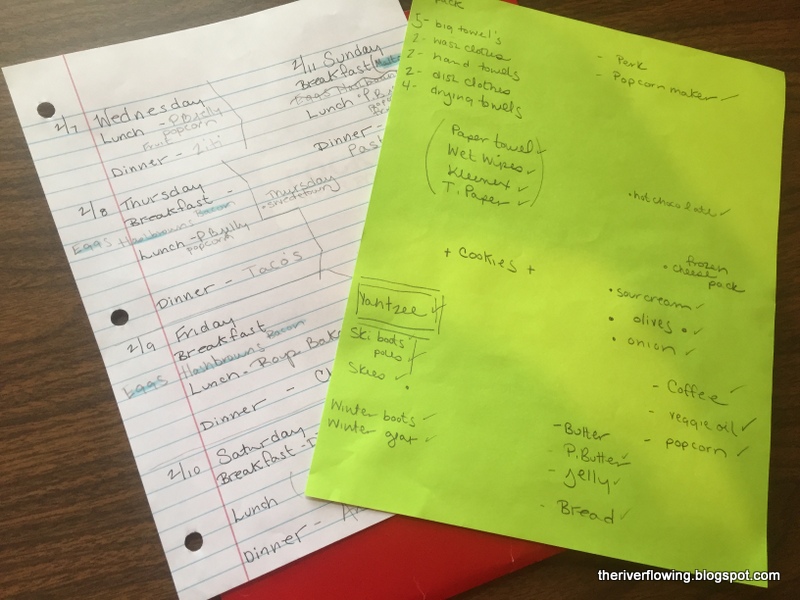 2/7 Wednesday
Lunch - P.B jelly
popcorn
Fruit
Dinner - Ziti
2/8 Thursday
Breakfast -
Eggs Hashbrowns Bacon
Lunch - P.B jelly
popcorn
Dinner - Taco's
2/9 Friday
Breakfast
Eggs Hashbrowns Bacon
Lunch -
Dinner -
2/10 Saturday
Breakfast -
Lunch
Dinner -
Thursday
2/11 Sunday
Breakfast
Lunch - P.B
Dinner -
pack
5- big towel's
2- wash clothes
2- hand towels
2- dish clothes
4- drying towels
Paper towel ✓
Wet Wipes ✓
Kleenex ✓
T. Paper ✓
- Pork
- Popcorn maker ✓
• hot chocolate ✓
+ cookies +
• frozen
cheese
pack
• sour cream ✓
• olives • ✓
• onion ✓
Yahtzee
Ski boots
poles
Skies ✓
Winter boots ✓
Winter gear ✓
- Coffee ✓
- veggie oil ✓
- popcorn ✓
- Butter
- P.Butter ✓
- jelly ✓
- Bread ✓
theriverflowing.blogspot.com